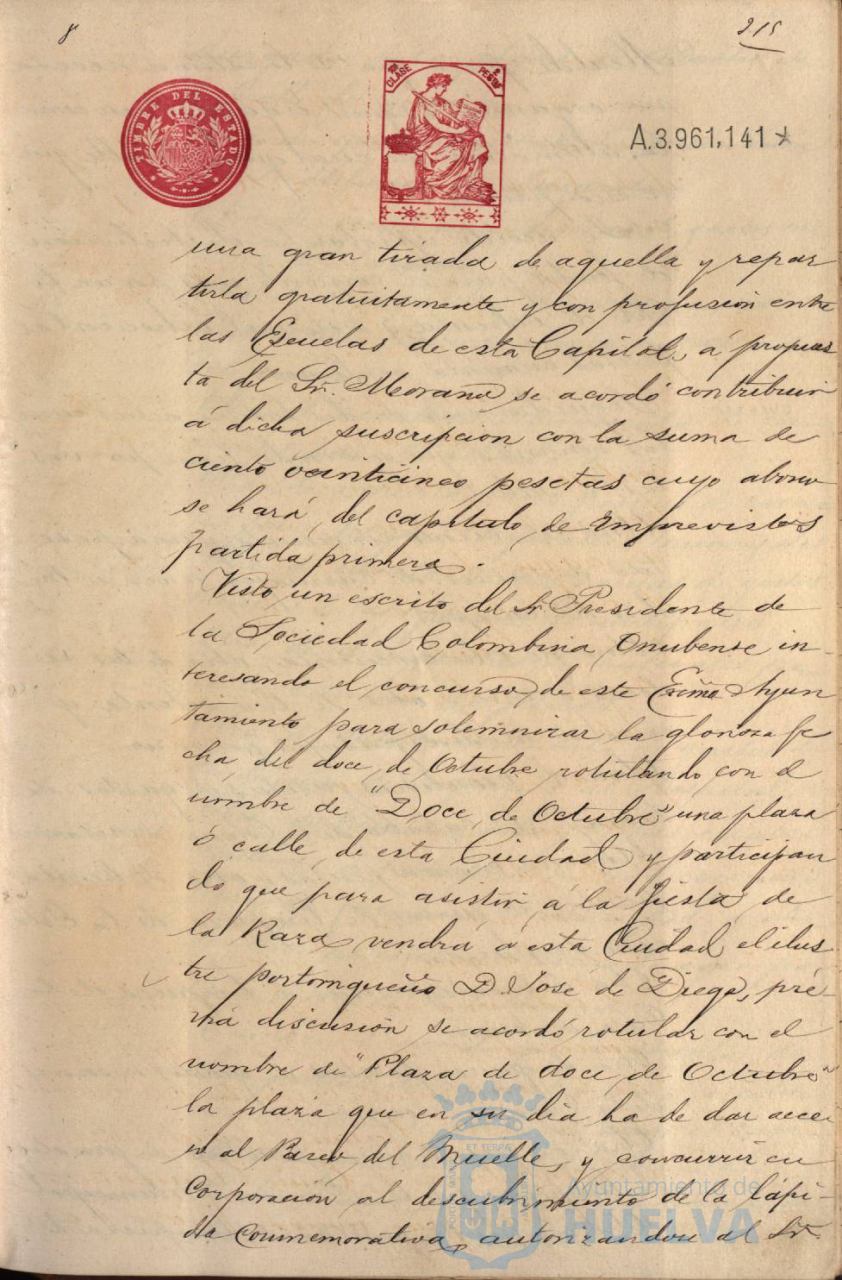 8
215
TIMBRE DEL ESTADO
CLASE
PESETAS
A.3.961,141*
una gran tirada de aquella y repar
tirla gratuitamente y con profusion entre
las Escuelas de esta Capital, á propues
ta del Sr. Morano se acordó contribuir
á dicha suscripcion con la suma de
ciento veinticinco pesetas cuyo abono
se hará del capitulo de Imprevistos
partida primera.
Visto un escrito del Sr Presidente de
la Sociedad Colombina Onubense in-
teresando el concurso de este Exmo Ayun
tamiento para solemnizar la gloriosa fe
cha del doce de Octubre rotulando con el
nombre de "Doce de Octubre" una plaza
ó calle de esta Ciudad y participan
do que para asistir á la fiesta de
la Raza vendrá á esta Ciudad el ilus
tre portorriqueño D. José de Diego, pré-
via discusión se acordó rotular con el
nombre de "Plaza de doce de Octubre"
la plaza que en su dia ha de dar acce
so al Paseo del Muelle, y concurrir en
Corporación al descubrimiento de la lápi-
da Conmemorativa, autorizandose al Sr.
Ayuntamiento de
HUELVA